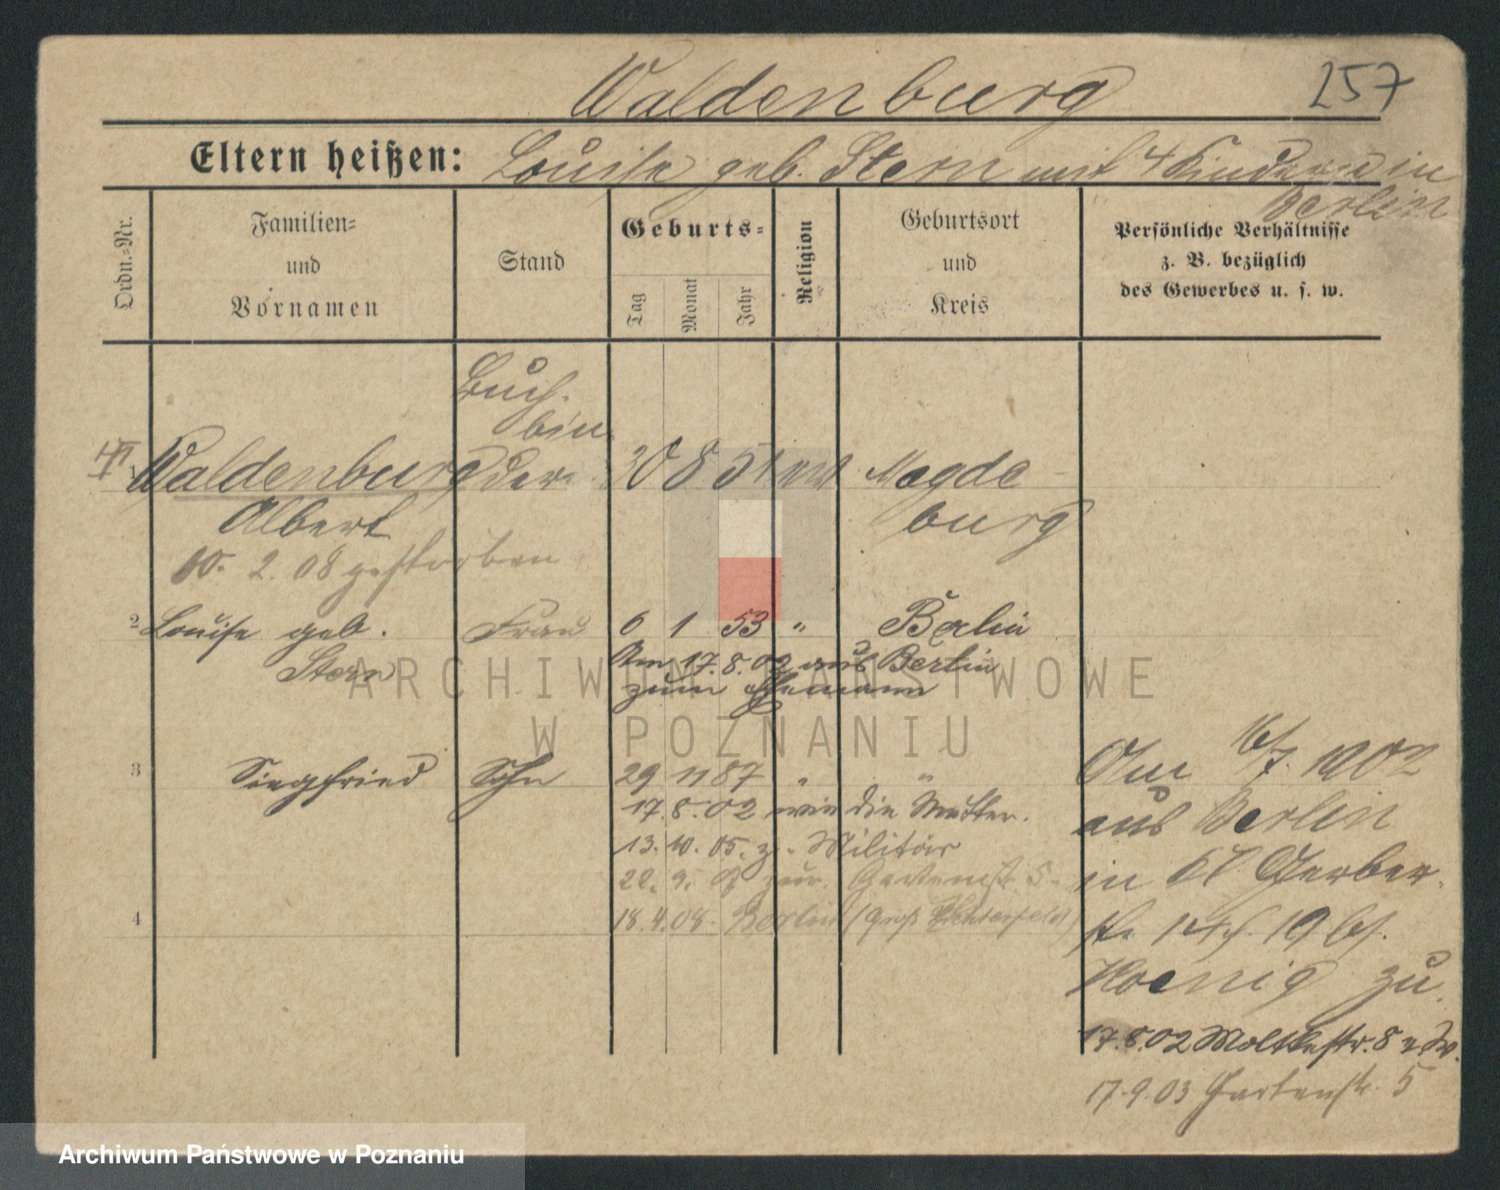 Waldenburg
257
Eltern heißen: Louise geb. Stern mit 4 Kindern in
Berlin
Ordn.=Nr.
Familien=
und
Vornamen
Stand
Geburts=
Tag
Monat
Jahr
Religion
Geburtsort
und
Kreis
Persönliche Verhältnisse
z. B. bezüglich
des Gewerbes u. s. w.
Buch-
bin
1 Waldenburg der 30 8 51 Magde-
Albert burg
10. 2. 08 gestorben
2 Louise geb. Frau 6 1 53 " Berlin
Stern Am 17.8.02 aus Berlin
zum Ehemann
3 Siegfried Sohn 29 11 87 " "
17.8.02 wie die Mutter.
13.10.05. z. Militär
zur. Gartenstr. 5
4 18.4.08. Berlin (Groß Lichterfelde)
Am 16/7. 1902
aus Berlin
in Gerber-
str. 19 bei
Koenig zu.
17.8.02 Moltkestr. 8
17.9.03 Gartenstr. 5
ARCHIWUM PAŃSTWOWE
W POZNANIU
Archiwum Państwowe w Poznaniu